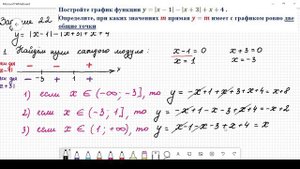 Постройте график функции y = |x − 1| − |x + 3| + x + 4 .
Определите, при каких значениях m прямая y = m имеет с графиком ровно две
общие точки
Задание 22
y = |x-1| - |x+3| + x+4
1. Найдём нули каждого модуля: x-1=0 x+3=0
x=1 x=-3
− − +
-3 1 x
− + +
1) если x ∈ (-∞; -3], то y = -x+1+x+3+x+4 = x+8
2) если x ∈ (-3; 1], то y = -x+1-x-3+x+4 = -x+2
3) если x ∈ (1; +∞), то y = x-1-x-3+x+4 = x